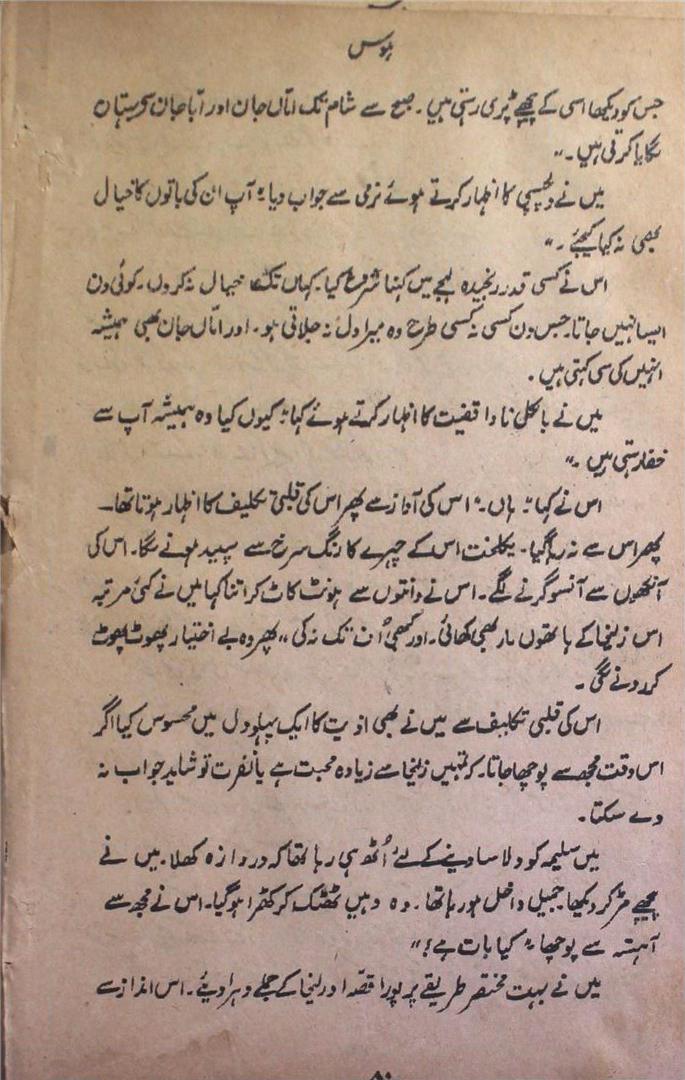 ہوس
جس کو دیکھا اسی کے پیچھے پڑی رہتی ہیں۔ صبح سے شام تک اماں جان اور ابا جان سے
لگایا کرتی ہیں۔"
میں نے دلچسپی کا اظہار کرتے ہوئے نرمی سے جواب دیا "آپ ان کی باتوں کا خیال
بھی نہ کیا کیجئے۔"
اس نے کسی قدر رنجیدہ لہجے میں کہنا شروع کیا۔ کہاں تک خیال نہ کروں۔ کوئی دن
ایسا نہیں جاتا۔ جس دن کسی نہ کسی طرح وہ میرا دل نہ جلاتی ہو۔ اور اماں جان بھی ہمیشہ
انہیں کی سی کہتی ہیں۔
میں نے بالکل ناواقفیت کا اظہار کرتے ہوئے کہا "کیوں کیا وہ ہمیشہ آپ سے
خفا رہتی ہیں۔"
اس نے کہا "ہاں۔" اس کی آواز سے پھر اس کی قلبی تکلیف کا اظہار ہوتا تھا۔
پھر اس سے نہ رہا گیا۔ یکلخت اس کے چہرے کا رنگ سرخ سے سپید ہونے لگا۔ اس کی
آنکھوں سے آنسو گرنے لگے۔ اس نے دانتوں سے ہونٹ کاٹ کر اتنا کہا میں نے کئی مرتبہ
اس زلیخا کے ہاتھوں مار بھی کھائی۔ اور کبھی اُف تک نہ کی" پھر وہ بے اختیار پھوٹ پھوٹ
کر رونے لگی۔
اس کی قلبی تکلیف سے میں نے بھی اذیت کا ایک پہلو دل میں محسوس کیا اگر
اس وقت مجھ سے پوچھا جاتا۔ کہ تمہیں زلیخا سے زیادہ محبت ہے یا نفرت تو شاید جواب نہ
دے سکتا۔
میں سلیمہ کو دلاسا دینے کے لئے اُٹھ ہی رہا تھا کہ دروازہ کھلا۔ میں نے
پیچھے مڑ کر دیکھا۔ جمیل داخل ہو رہا تھا۔ وہ وہیں ٹھٹک کر کھڑا ہو گیا۔ اس نے مجھ سے
آہستہ سے پوچھا "کیا بات ہے؟"
میں نے بہت مختصر طریقے پر پورا قصّہ اور زلیخا کے جملے دہرا دیئے۔ اس انداز سے